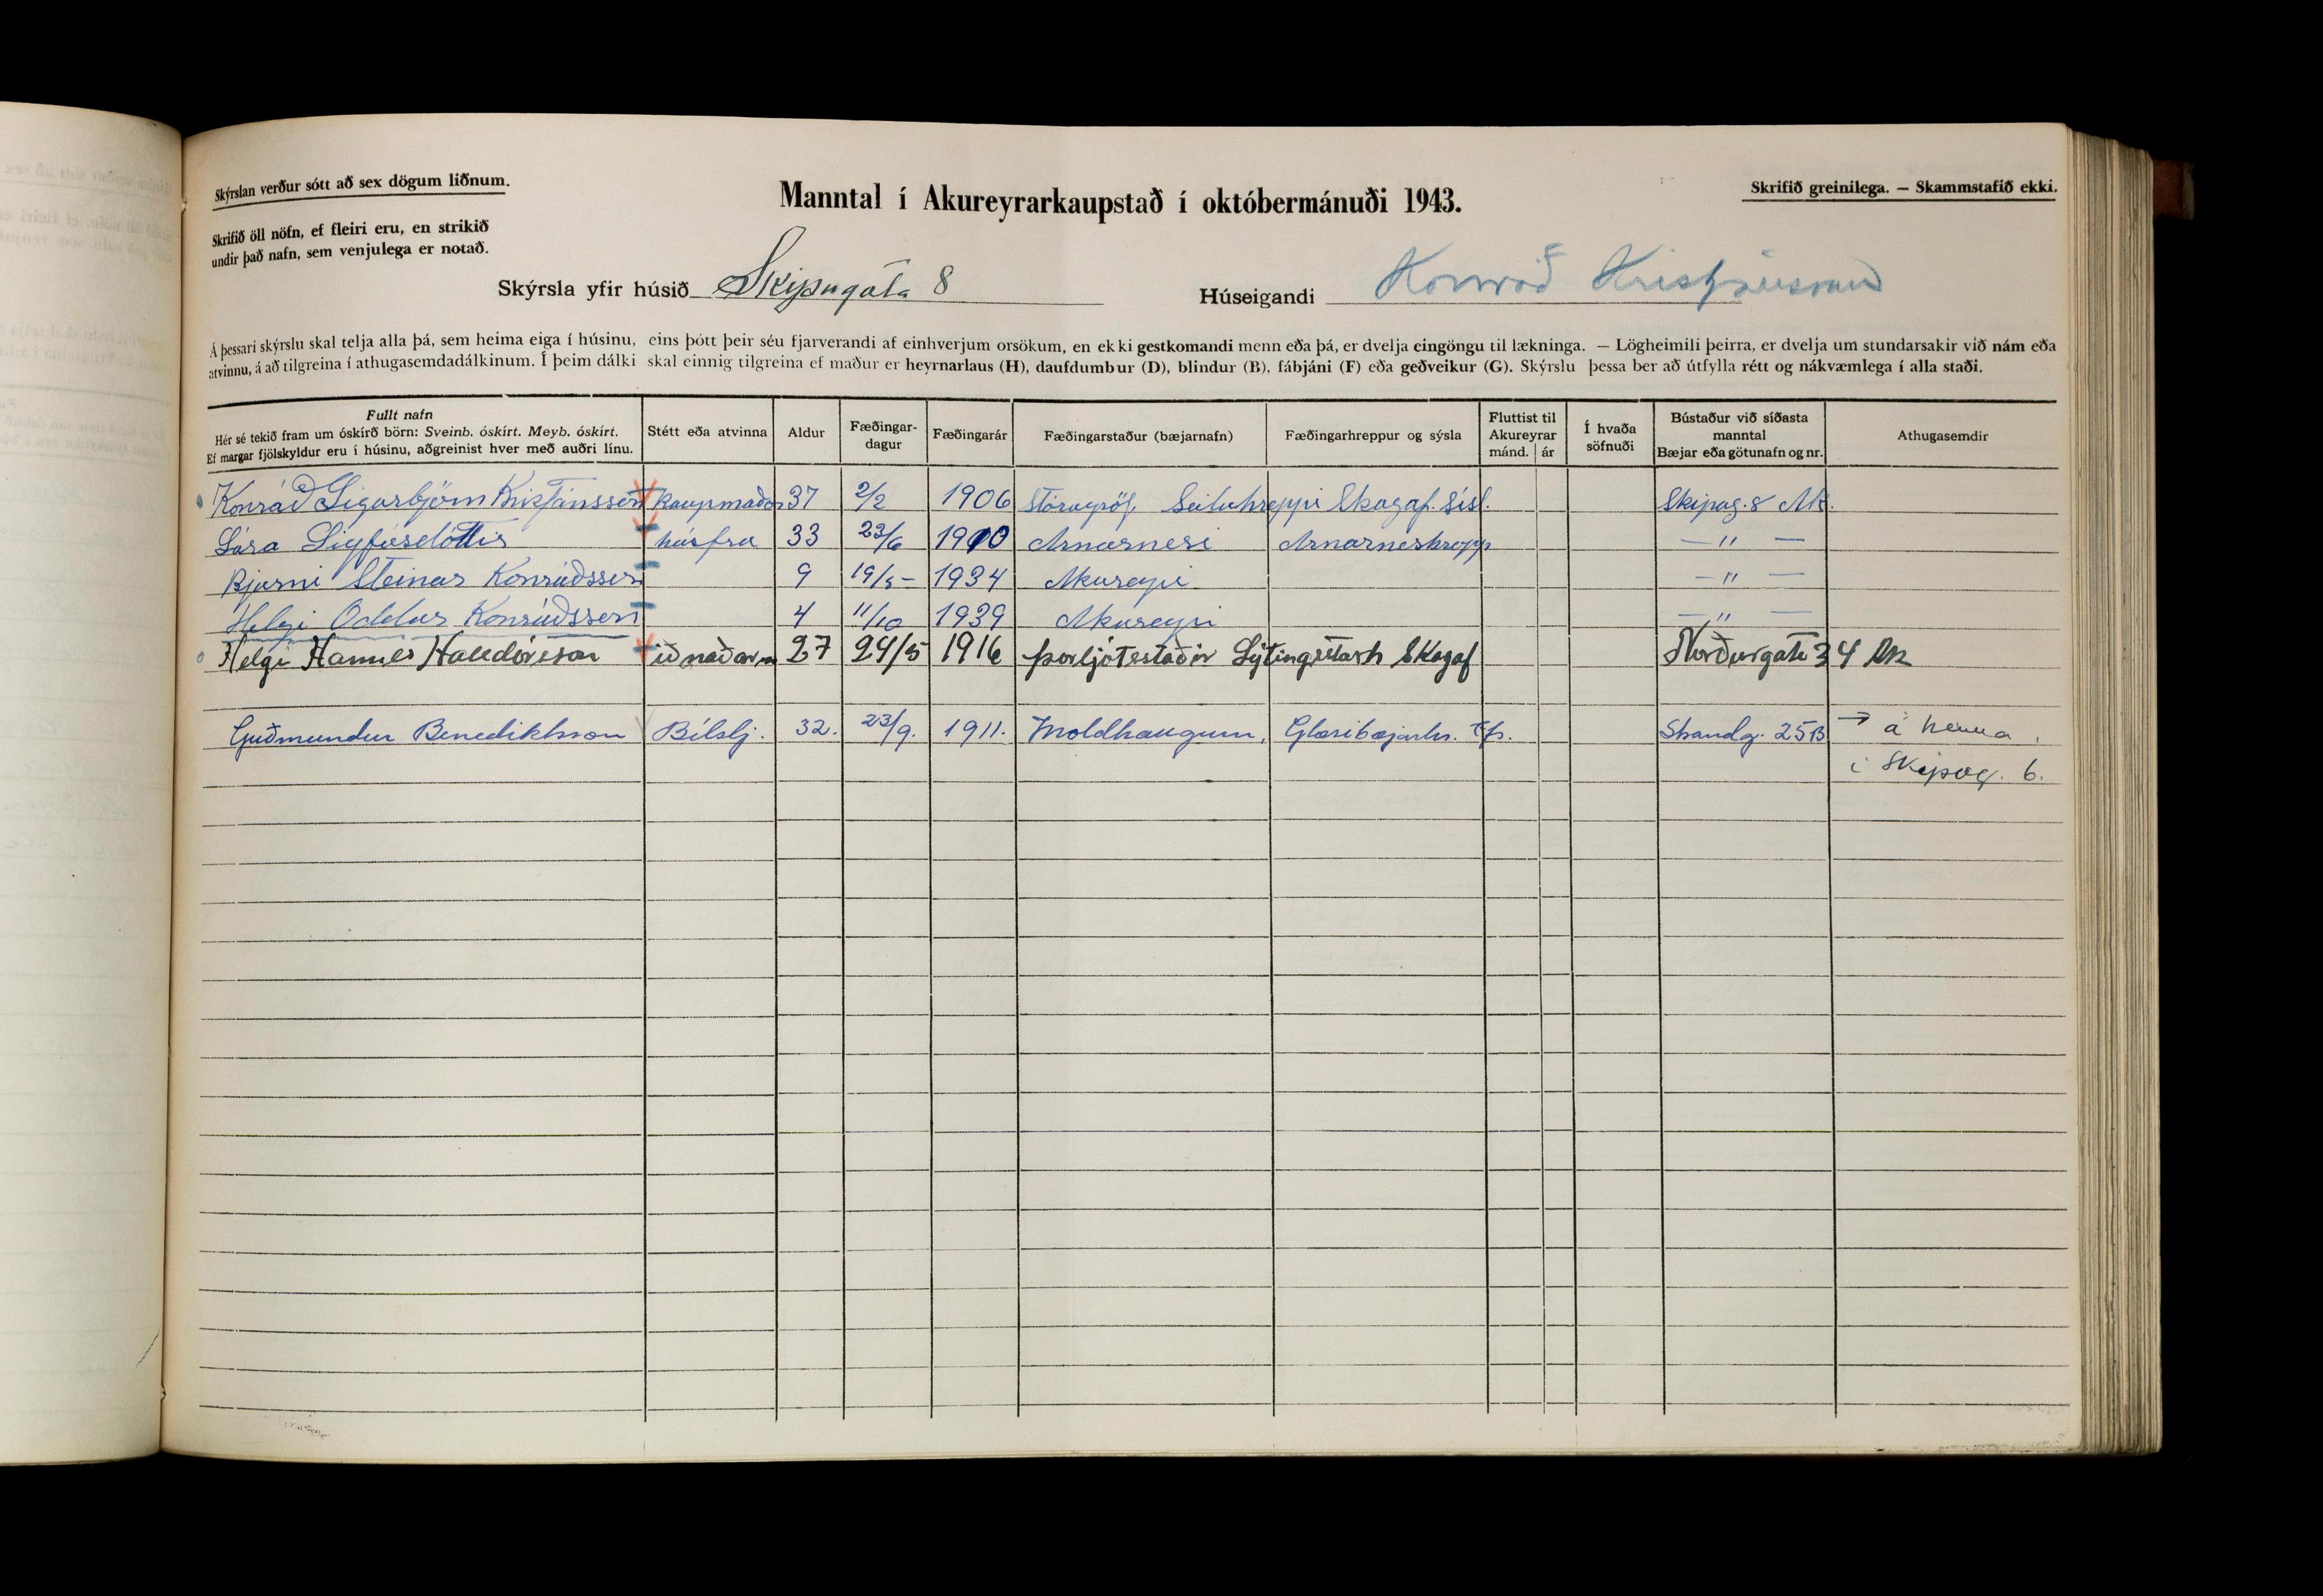 Skýrslan verður sótt að sex dögum liðnum.
Skrifið öll nöfn, ef fleiri eru, en strikið
undir það nafn, sem venjulega er notað.
Manntal í Akureyrarkaupstað í októbermánuði 1943.
Skrifið greinilega. — Skammstafið ekki.
Skýrsla yfir húsið Skipagata 8 Húseigandi Konráð Kristjánsson
Á þessari skýrslu skal telja alla þá, sem heima eiga í húsinu, eins þótt þeir séu fjarverandi af einhverjum orsökum, en ekki gestkomandi menn eða þá, er dvelja eingöngu til lækninga. — Lögheimili þeirra, er dvelja um stundarsakir við nám eða
atvinnu, á að tilgreina í athugasemdadálkinum. Í þeim dálki skal einnig tilgreina ef maður er heyrnarlaus (H), daufdumbur (D), blindur (B), fábjáni (F) eða geðveikur (G). Skýrslu þessa ber að útfylla rétt og nákvæmlega í alla staði.
Fullt nafn
Hér sé tekið fram um óskírð börn: Sveinb. óskírt. Meyb. óskírt.
Ef margar fjölskyldur eru í húsinu, aðgreinist hver með auðri línu.
Stétt eða atvinna
Aldur
Fæðingar-
dagur
Fæðingarár
Fæðingarstaður (bæjarnafn)
Fæðingarhreppur og sýsla
Fluttist til
Akureyrar
mánd. ár
Í hvaða
söfnuði
Bústaður við síðasta
manntal
Bæjar eða götunafn og nr.
Athugasemdir
Konráð Sigurbjörn Kristjánsson kaupmaður 37 2/2 1906 Stórugröf Seiluhreppi Skagaf. sísl. Skipag. 8 Ak.
Lára Sigfúsdóttir húsfrú 33 23/6 1910 Arnarnesi Arnarneshrepp — " —
Bjarni Steinar Konráðsson 9 19/5 - 1934 Akureyri — " —
Helgi Oddur Konráðsson 4 11/10 1939 Akureyri — " —
Helgi Hannes Halldórsson iðnaðarm 27 24/5 1916 Þorljótsstaðir Lýtingsstaðh Skagaf Norðurgata 34 Ak
Guðmundur Benediktsson Bílslj. 32. 23/9. 1911. Moldhaugum, Glæsibæjarhr. Ef. Strandg. 25B → á heima
í Skipag. 6.